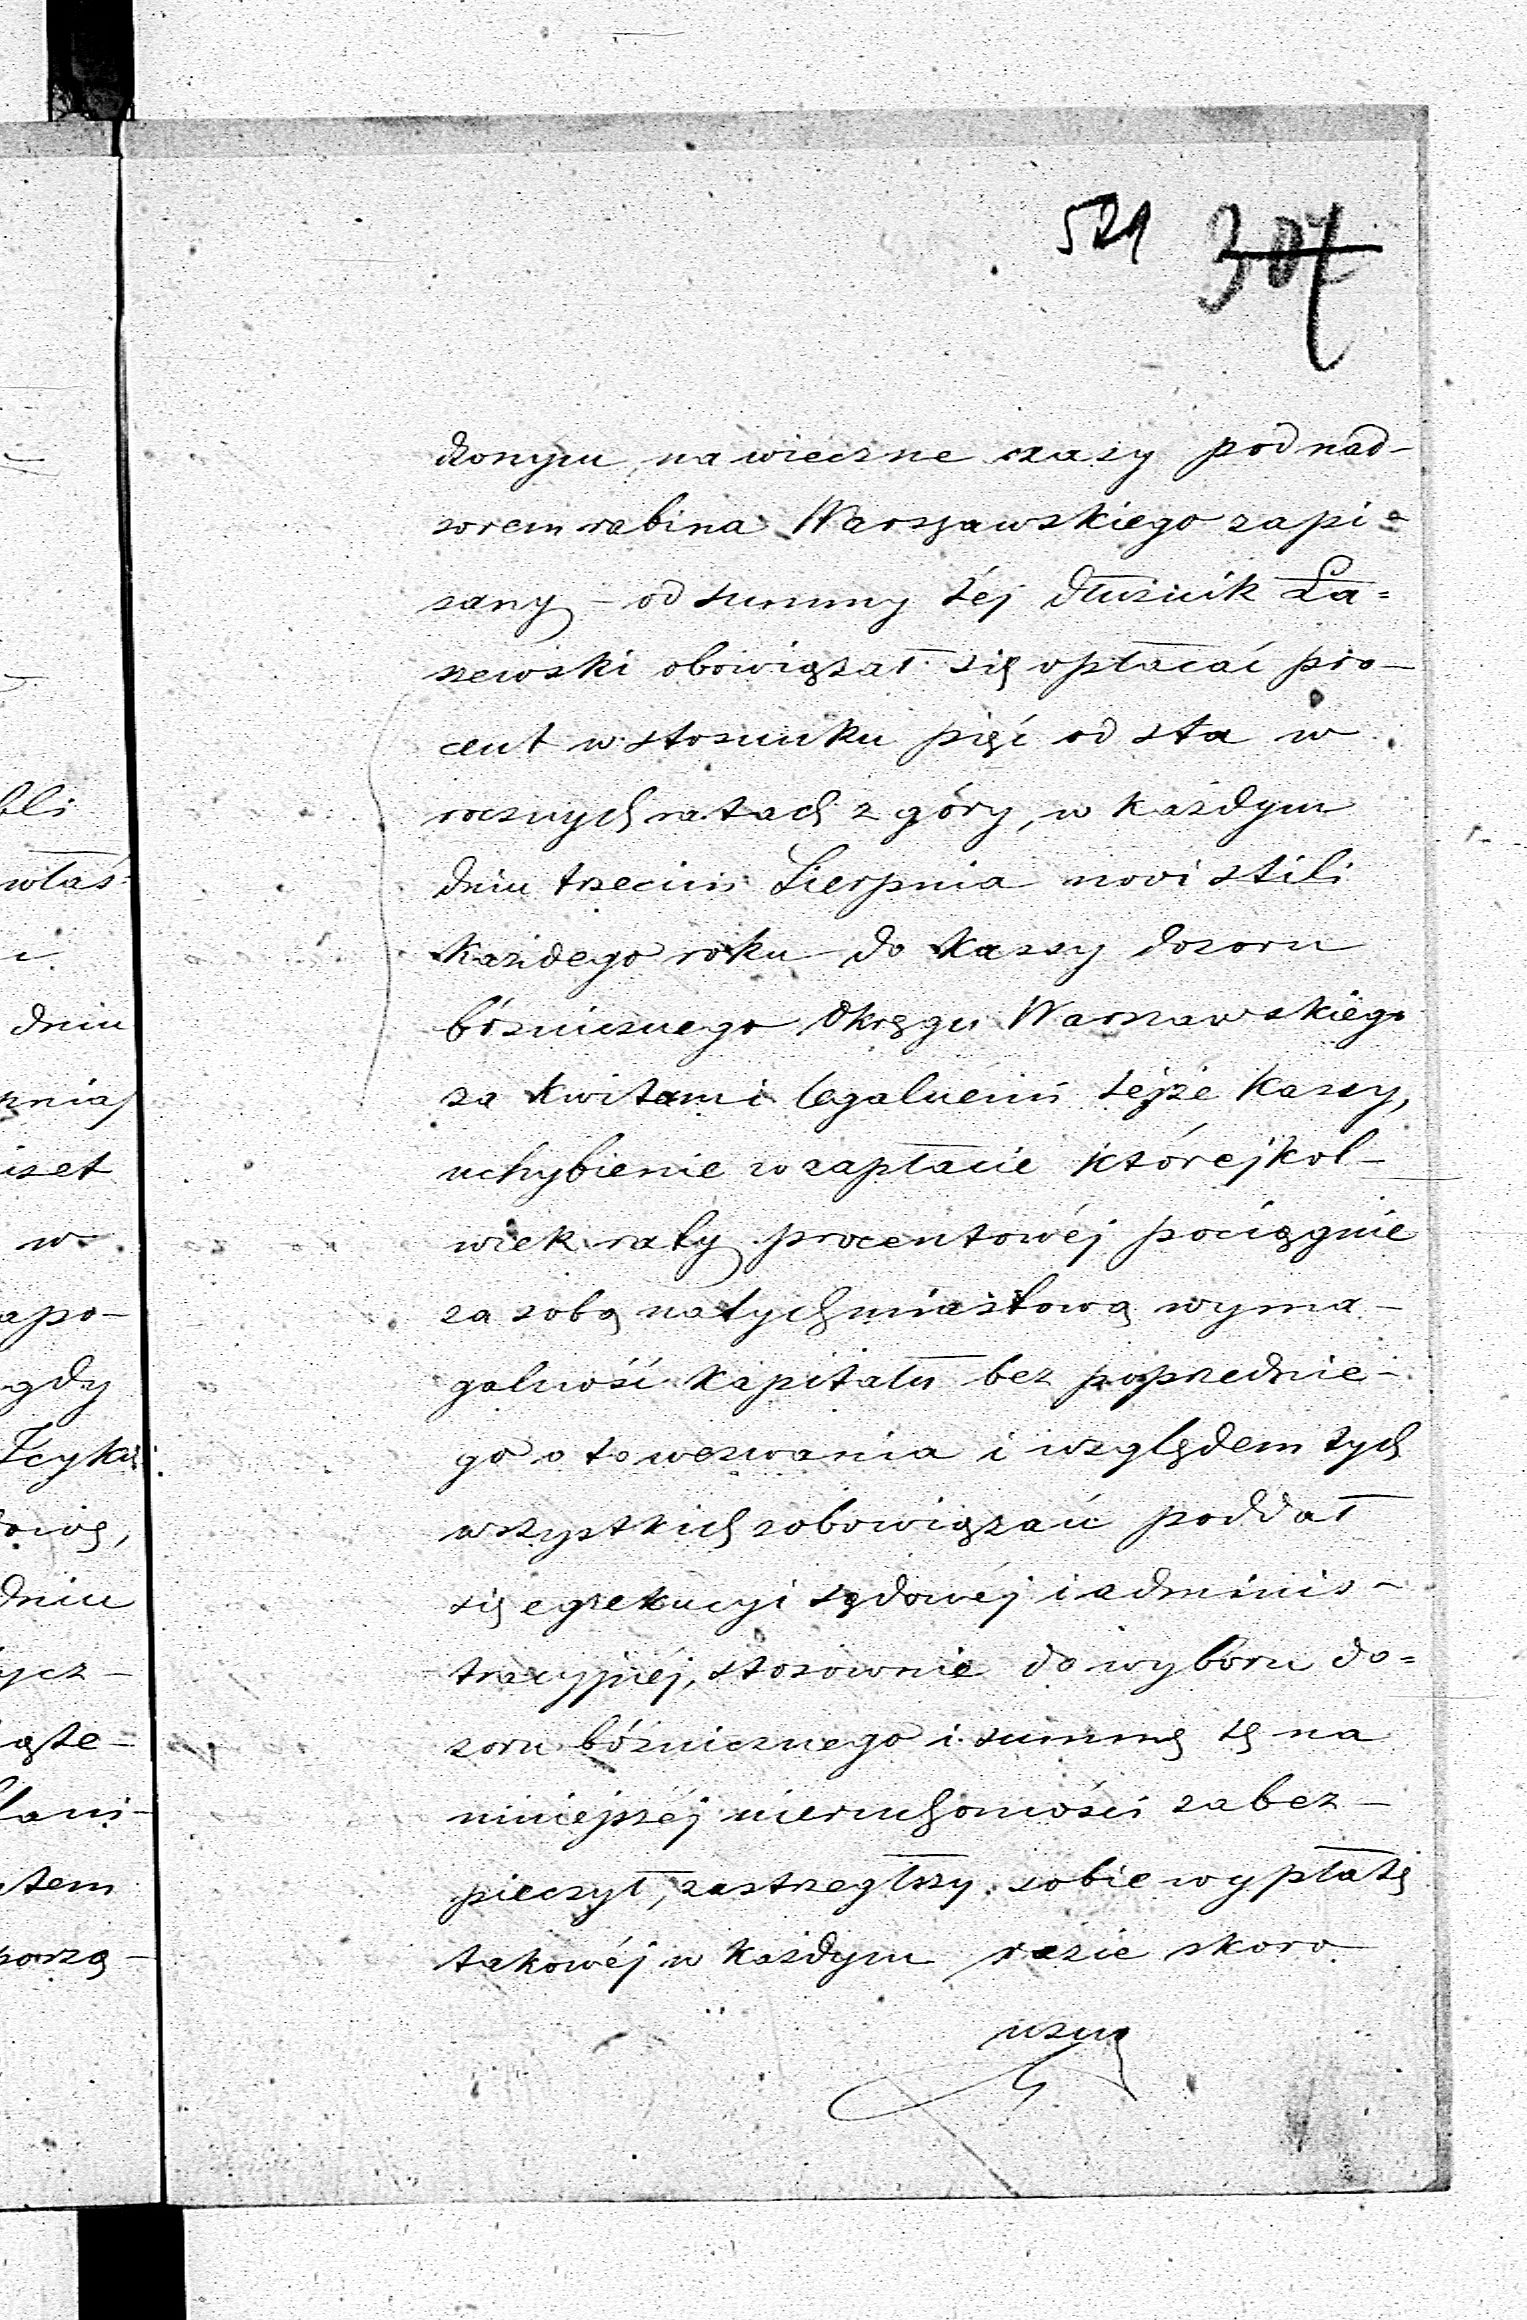 521 307
dzonym, na wieczne czasy pod nad-
zorem rabina Warszawskiego zapi-
sany – od summy téj dłużnik Ła=
szewski obowiązał się opłacać pro-
cent w stosunku pięć od sta w
rocznych ratach z góry, w każdym
dniu trzecim Sierpnia novi stili
każdego roku do kassy dozoru
bóżnicznego Okręgu Warszawskiego
za kwitami legalnemi tejże kassy,
uchybienie w zapłacie którejkol-
wiek raty procentowéj pociągnie
za sobą natychmiastową wyma-
galność kapitału bez poprzednie-
go o to wezwania i względem tych
wszystkich zobowiązań poddał
się egzekucyi sądowéj i adminis-
tracyjnéj, stosownie do wyboru do=
zoru bóżnicznego i summę tę na
niniejszéj nieruchomości zabez-
pieczył, zastrzegłszy sobie wypłatę
takowéj w każdym razie skoro
bli
właś-
i
dniu
pnia/
iset
w
apo-
gdy
Icyka
dową,
dniu
ycz-
iąte-
lani-
tem
porzą-